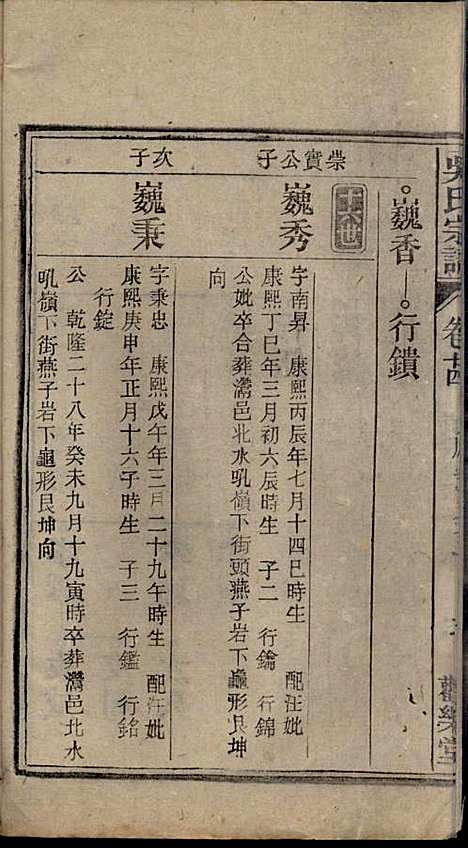 吳氏宗譜 卷廿四
觀樂堂
巍香 行鐨
十六世
崇實公子
巍秀
字南昇 康熙丙辰年七月十四巳時生 配汪妣
康熙丁巳年三月初六辰時生 子二 行鑰 行錦
公妣卒合葬灊邑北水吼嶺下街頭燕子岩下龜形艮坤
向
次子
巍秉
字秉忠 康熙戊午年三月二十九午時生 配汪妣
康熙庚申年正月十六子時生 子三 行鑑 行銘
行錠
公 乾隆二十八年癸未九月十九寅時卒葬灊邑北水
吼嶺下街燕子岩下龜形艮坤向